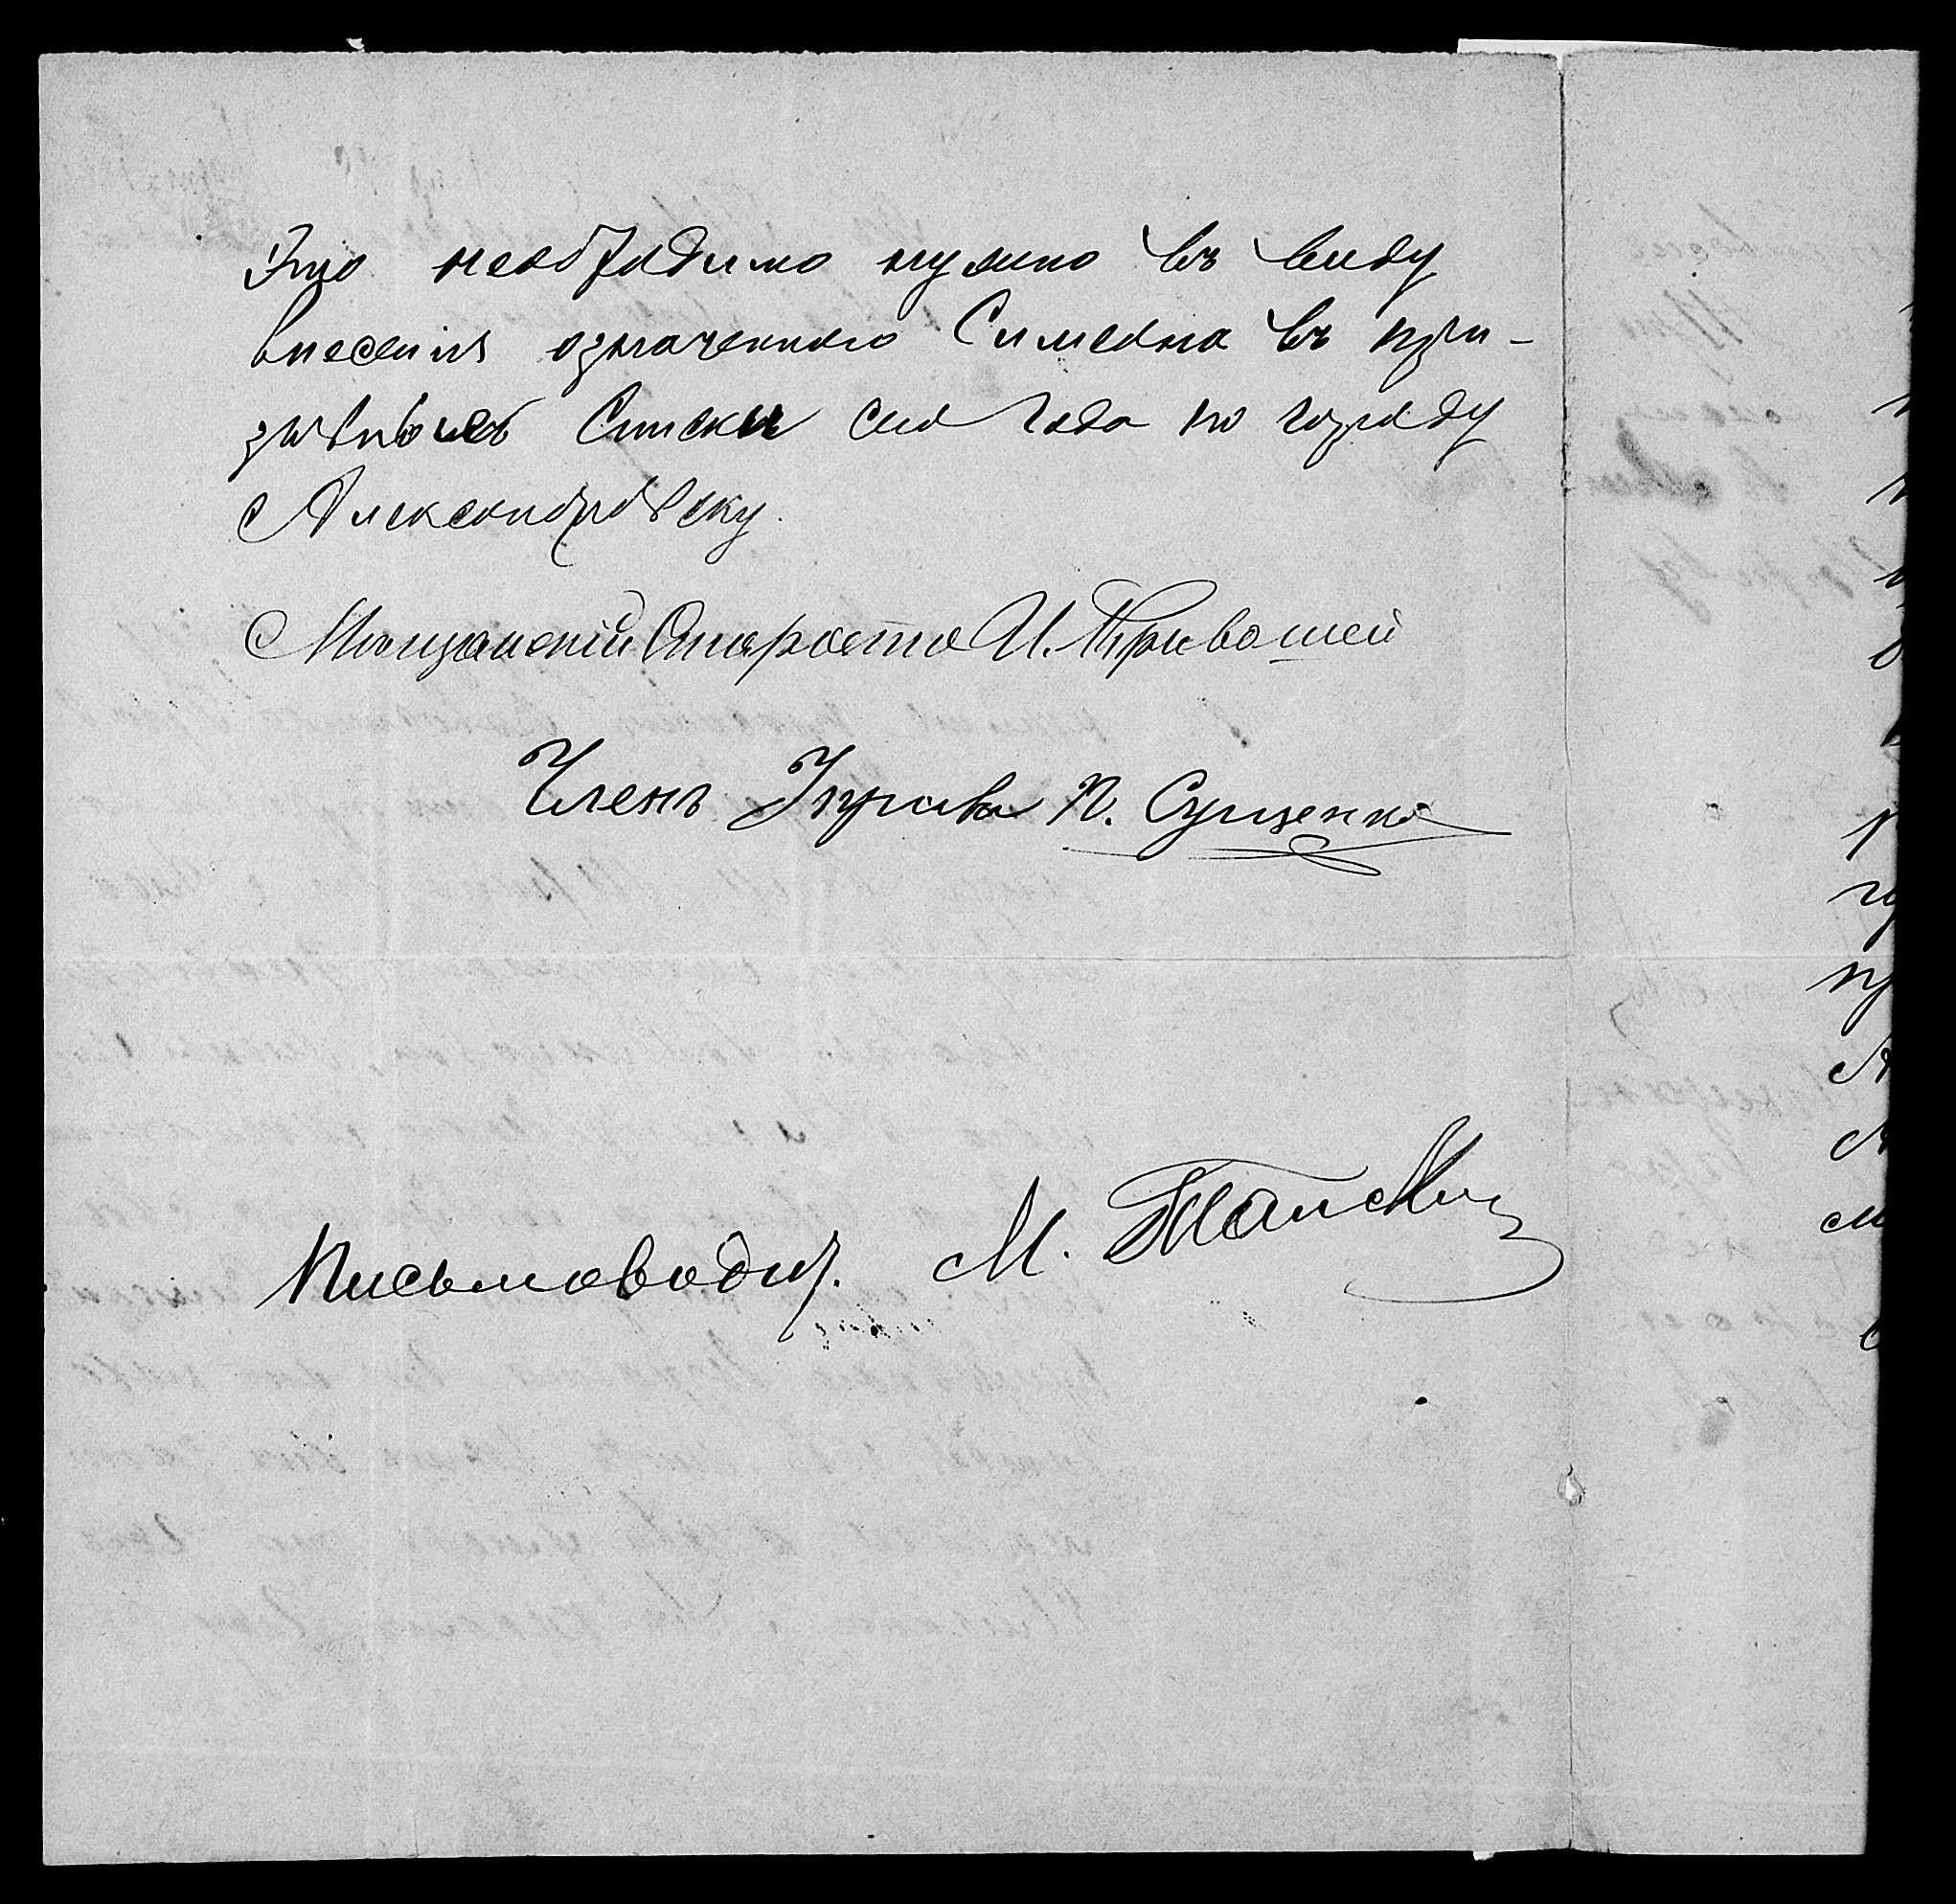 Это необходимо нужно въ виду
внесенія означеннаго Симеона въ при-
зывные Списки сего года по городу
Александровску.
Мѣщанскій Староста И. Кривошей
Членъ Управы П. Сущенко
Письмоводит. М.